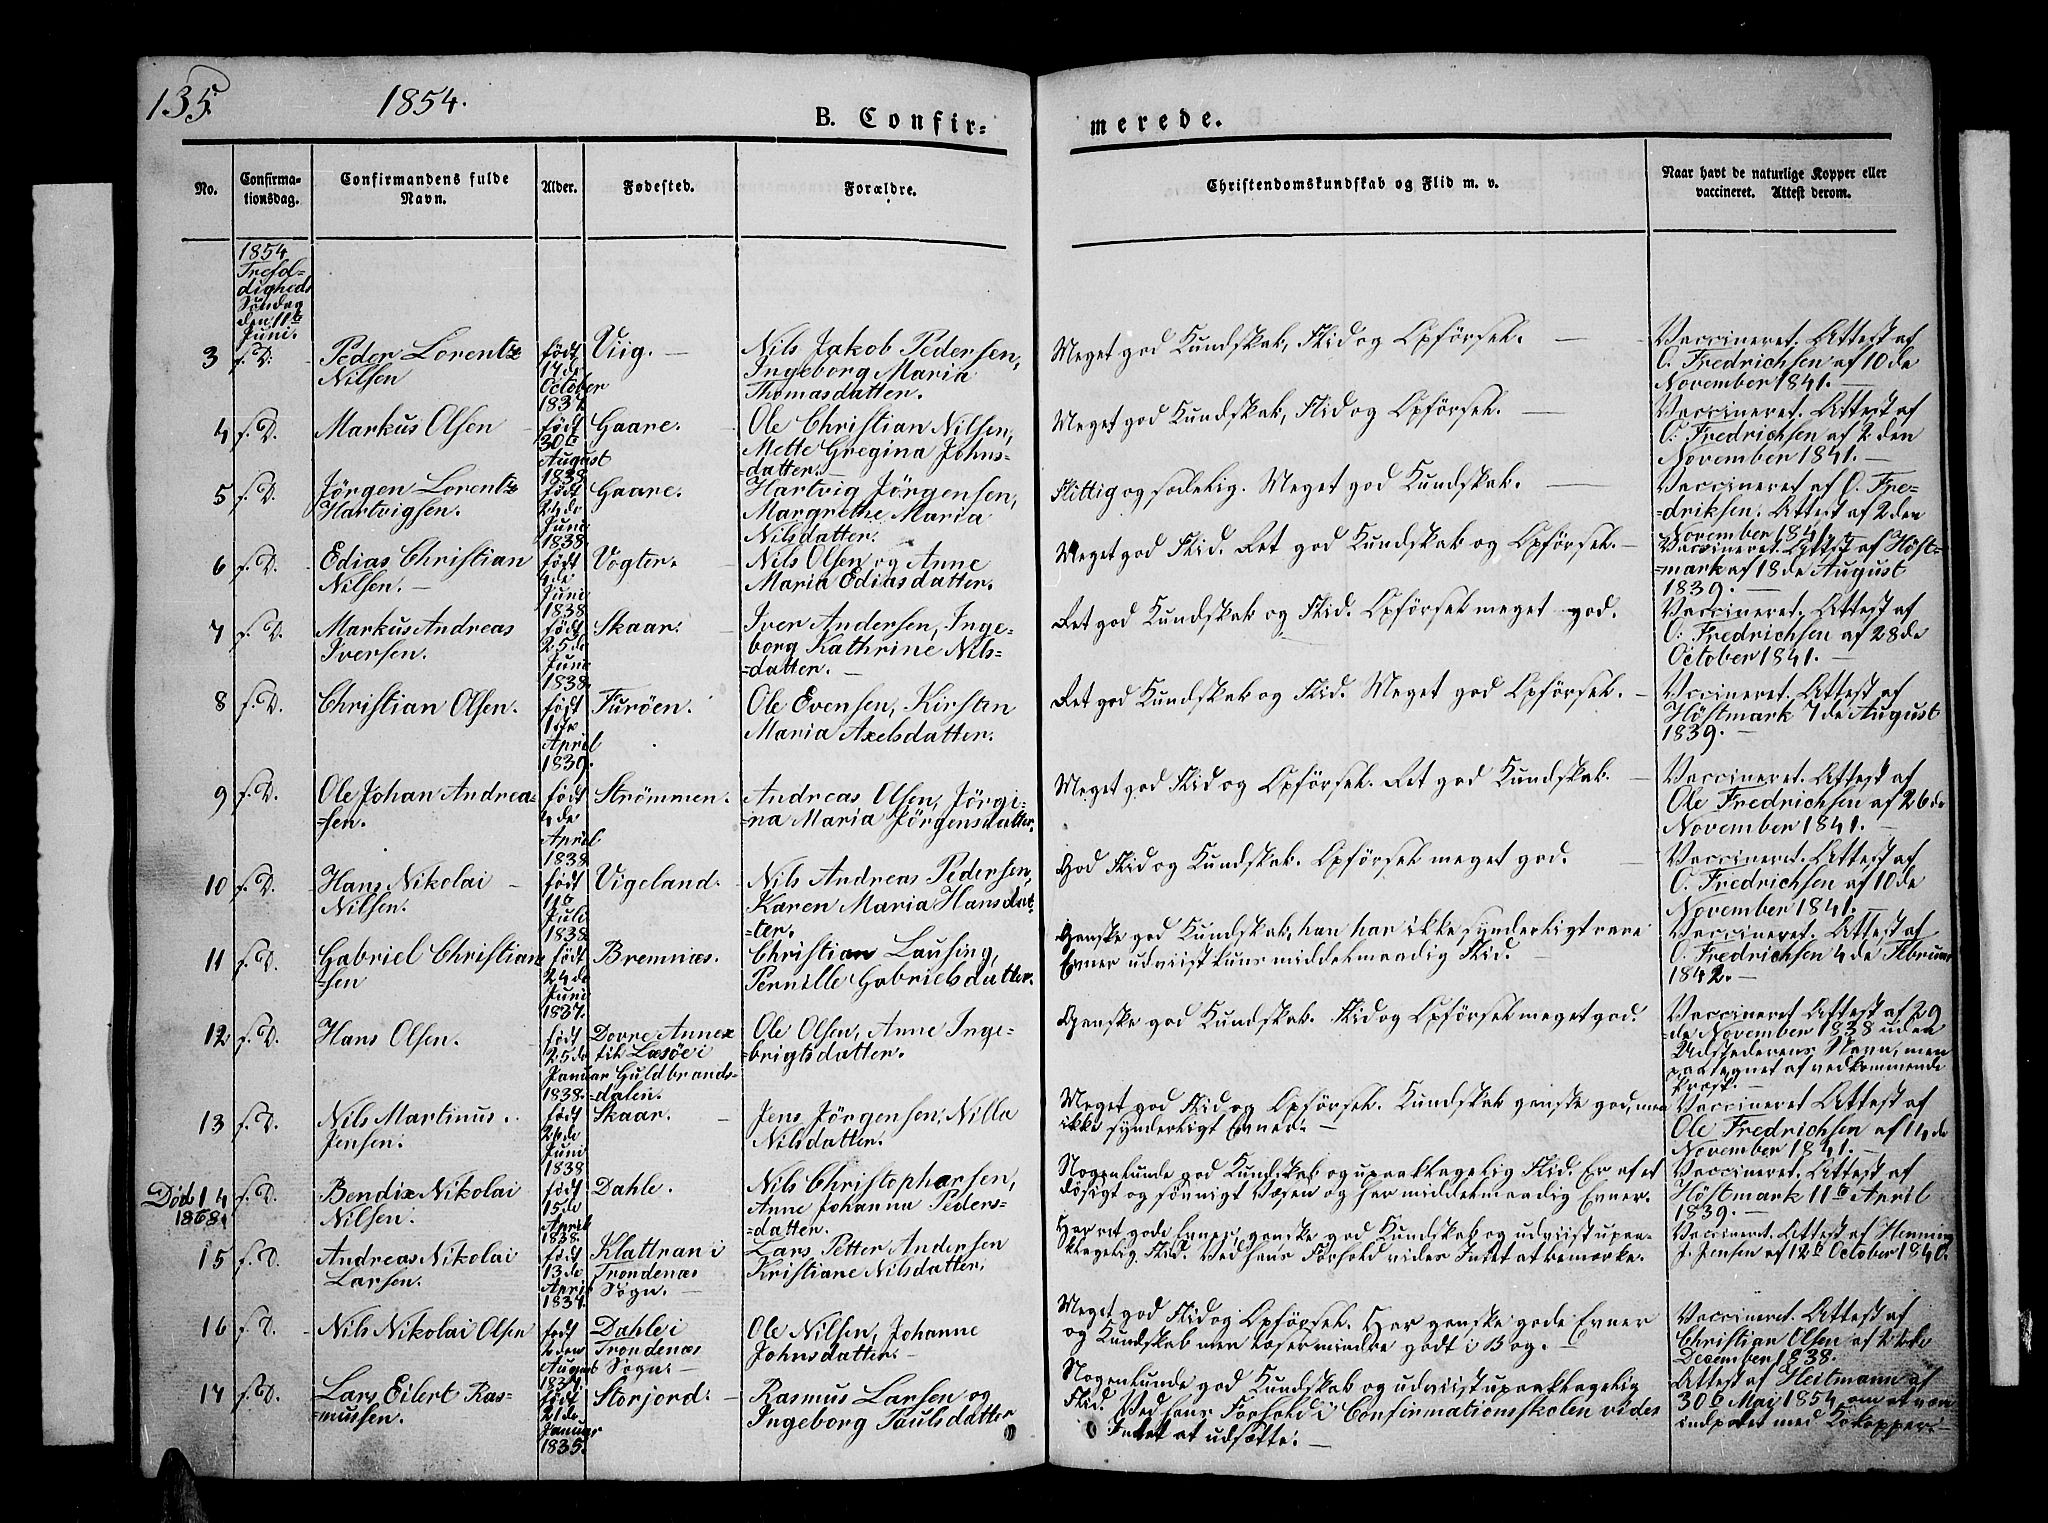 135.
1854.
B. Confir-
merede.
No.
Confirma-
tionsdag.
Confirmandens fulde
Navn.
Alder.
Fødested.
Forældre.
Christendomskundskab og Flid m. v.
Naar havt de naturlige Kopper eller
vaccineret. Attest derom.
1854
Trefol=
digheds
Søndag
den 11te
Juni.
3
s. D.
Peder Lorentz
Nilsen
født
17de
October
1837
Viig.
Nils Jakob Pedersen,
Ingeborg Maria
Thomasdatter.
Meget god Kundskab, Flid og Opførsel.
Vaccineret. Attest af
O. Fredrichsen af 10de
November 1841.
4
s. D.
Markus Olsen
født
30te
August
1838
Gaare.
Ole Christian Nilsen,
Mette Gregina Johns=
=datter.
Meget god Kundskab, Flid og Opførsel.
Vaccineret. Attest af
O. Fredrichsen af 2den
November 1841.
5
s. D.
Jörgen Lorentz
Hartvigsen.
født
24de
Juni
1838.
Gaare.
Hartvig Jörgensen,
Margrethe Maria
Nilsdatter.
Flittig og sædelig. Meget god Kundskab.
Vaccineret af O. Fre=
=driksen. Attest af 2den
November 1841.
6
s. D.
Edias Christian
Nilsen.
født
4de
Juni
1838
Vogter.
Nils Olsen og Anne
Maria Ediasdatter.
Meget god Flid. Ret god Kundskab og Opførsel.
Vaccineret. Attest af Höst=
=mark af 18de August
1839.
7
s. D.
Markus Andreas
Iversen.
født
25de
Juni
1838.
Skaar.
Iver Andersen, Inge=
borg Kathrine Nils=
=datter.
Ret god Kundskab og Flid. Opførsel meget god.
Vaccineret. Attest af
O. Fredrichsen af 28de
October 1841.
8
s. D.
Christian Olsen.
født
1ste
April
1839.
Furöen.
Ole Evensen, Kirsten
Maria Axelsdatter.
Ret god Kundskab og Flid. Meget god Opførsel.
Vccineret. Attest af
Höstmark 7de August
1839.
9
s. D.
Ole Johan Andrea=
=sen.
født
4de
April
1838
Strömmen.
Andreas Olsen, Jörgi=
=na Maria Jörgensdatter.
Meget god Flid og Opførsel. Ret god Kundskab.
Vaccineret. Attest af
Ole Fredrichsen af 26de
November 1841.
10
s. D.
Hans Nikolai
Nilsen.
født
11te
Juli
1838
Vigeland.
Nils Andreas Pedersen,
Karen Maria Hansdat=
=ter.
God Flid og Kundskab. Opførsel meget god.
Vaccineret. Attest af
O. Fredrichsen af 10de
November 1841.
11
s. D.
Gabriel Christian=
=sen
født
24de
Juni
1837.
Bremnæs.
Christian Lausing,
Pernille Gabrielsdatter.
Ganske god Kundskab, han har ikke synderligt rare
Evner udviist kuns middelmaadig Flid.
Vaccineret. Attest af
O. Fredrichsen 4de Februar
1842.
12
s. D.
Hans Olsen.
født
25de
Januar
1838.
Dovre Annex
til Læsöe i
Guldbrands=
=dalen.
Ole Olsen, Anne Inge=
=brigtsdatter.
Ganske god Kundskab. Flid og Opførsel meget god.
Vaccineret Attest af 29
=de November 1838 uden
Udstederens Navn, men
paategnet af vedkommende
Præst.
13
s. D.
Nils Martinus
Jensen.
født
26de
Juni
1838
Skaar.
Jens Jörgensen, Nilla
Nilsdatter.
Meget god Flid og Opførsel. Kundskab ganske god, men
ikke synderligt Evner.
Vaccineret Attest af
Ole Fredrichsen af 14de
November 1841.
Død
1868.
14
s. D.
Bendix Nikolai
Nilsen.
født
15de
April
1838.
Dahle.
Nils Christophersen,
Anne Johanna Peders=
=datter.
Nogenlunde god Kundskab og upaaklagelig Flid. Er af et
døsigt og søvnigt Væsen og har middelmaadig Evner.
Vaccineret. Attest af
Höstmark 11te April
1839.
15
s. D.
Andreas Nikolai
Larsen.
født
13de
April
1834.
Klattran i
Trondenæs
Sogn.
Lars Petter Andersen
Kristiane Nilsdatter.
Har ret gode Evner, ganske god Kundskab og udviist upaa=
klagelig Flid. Ved hans Forhold vides Intet at bemærke.
Vaccineret. Attest af Henning
J. Jensen af 12te October 1840.
16
s. D.
Nils Nikolai Olsen
født
2den
August
1837.
Dahle i
Trondenæs
Sogn.
Ole Nilsen, Johanne
Johnsdatter.
Meget god Flid og Opførsel. Har ganske gode Evner
og Kundskab men læser mindre godt i Bog.
Vaccineret. Attest af
Christian Olsen af 22de
December 1838.
17
s. D.
Lars Eilert Ras=
=mussen.
født
21de
Januar
1835.
Storjord.
Rasmus Larsen og
Ingeborg Paulsdatter
Nogenlunde god Kundskab og udviist upaaklagelig
Flid. Ved hans Forhold i Confirmationsskolen vides
Intet at udsætte.
Attest af Heitmann af
30te Mai 1854 om at være
indpodet med Kokopper.